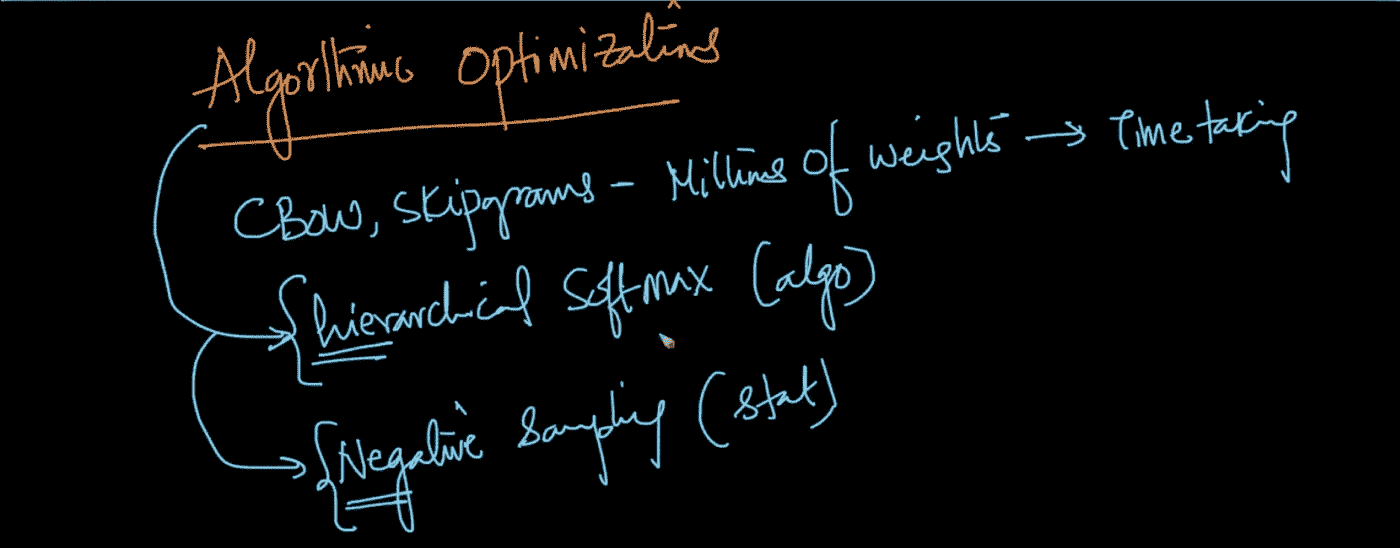 Algorithmic Optimizations
CBOW, Skipgrams - Millions of weights → Time taking
hierarchical Softmax (algo)
Negative Sampling (stat)